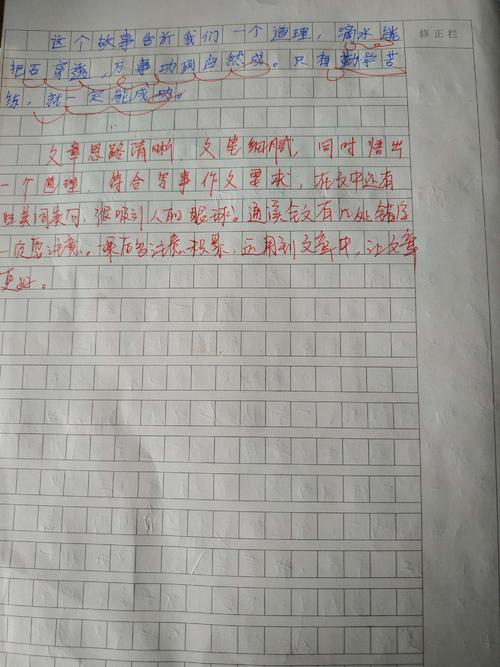 这个故事告诉我们一个道理，滴水能
修正栏
把石穿透，万事功到自然成。只有勤学苦
练，就一定能成功。
文章思路清晰，文笔细腻，同时悟出
一个道理，符合写事作文要求，在文中还有
些美词美句，很吸引人的眼球。通读全文有几处错字
一定要注意。课后多注意积累，运用到文章中，让文章
更好。